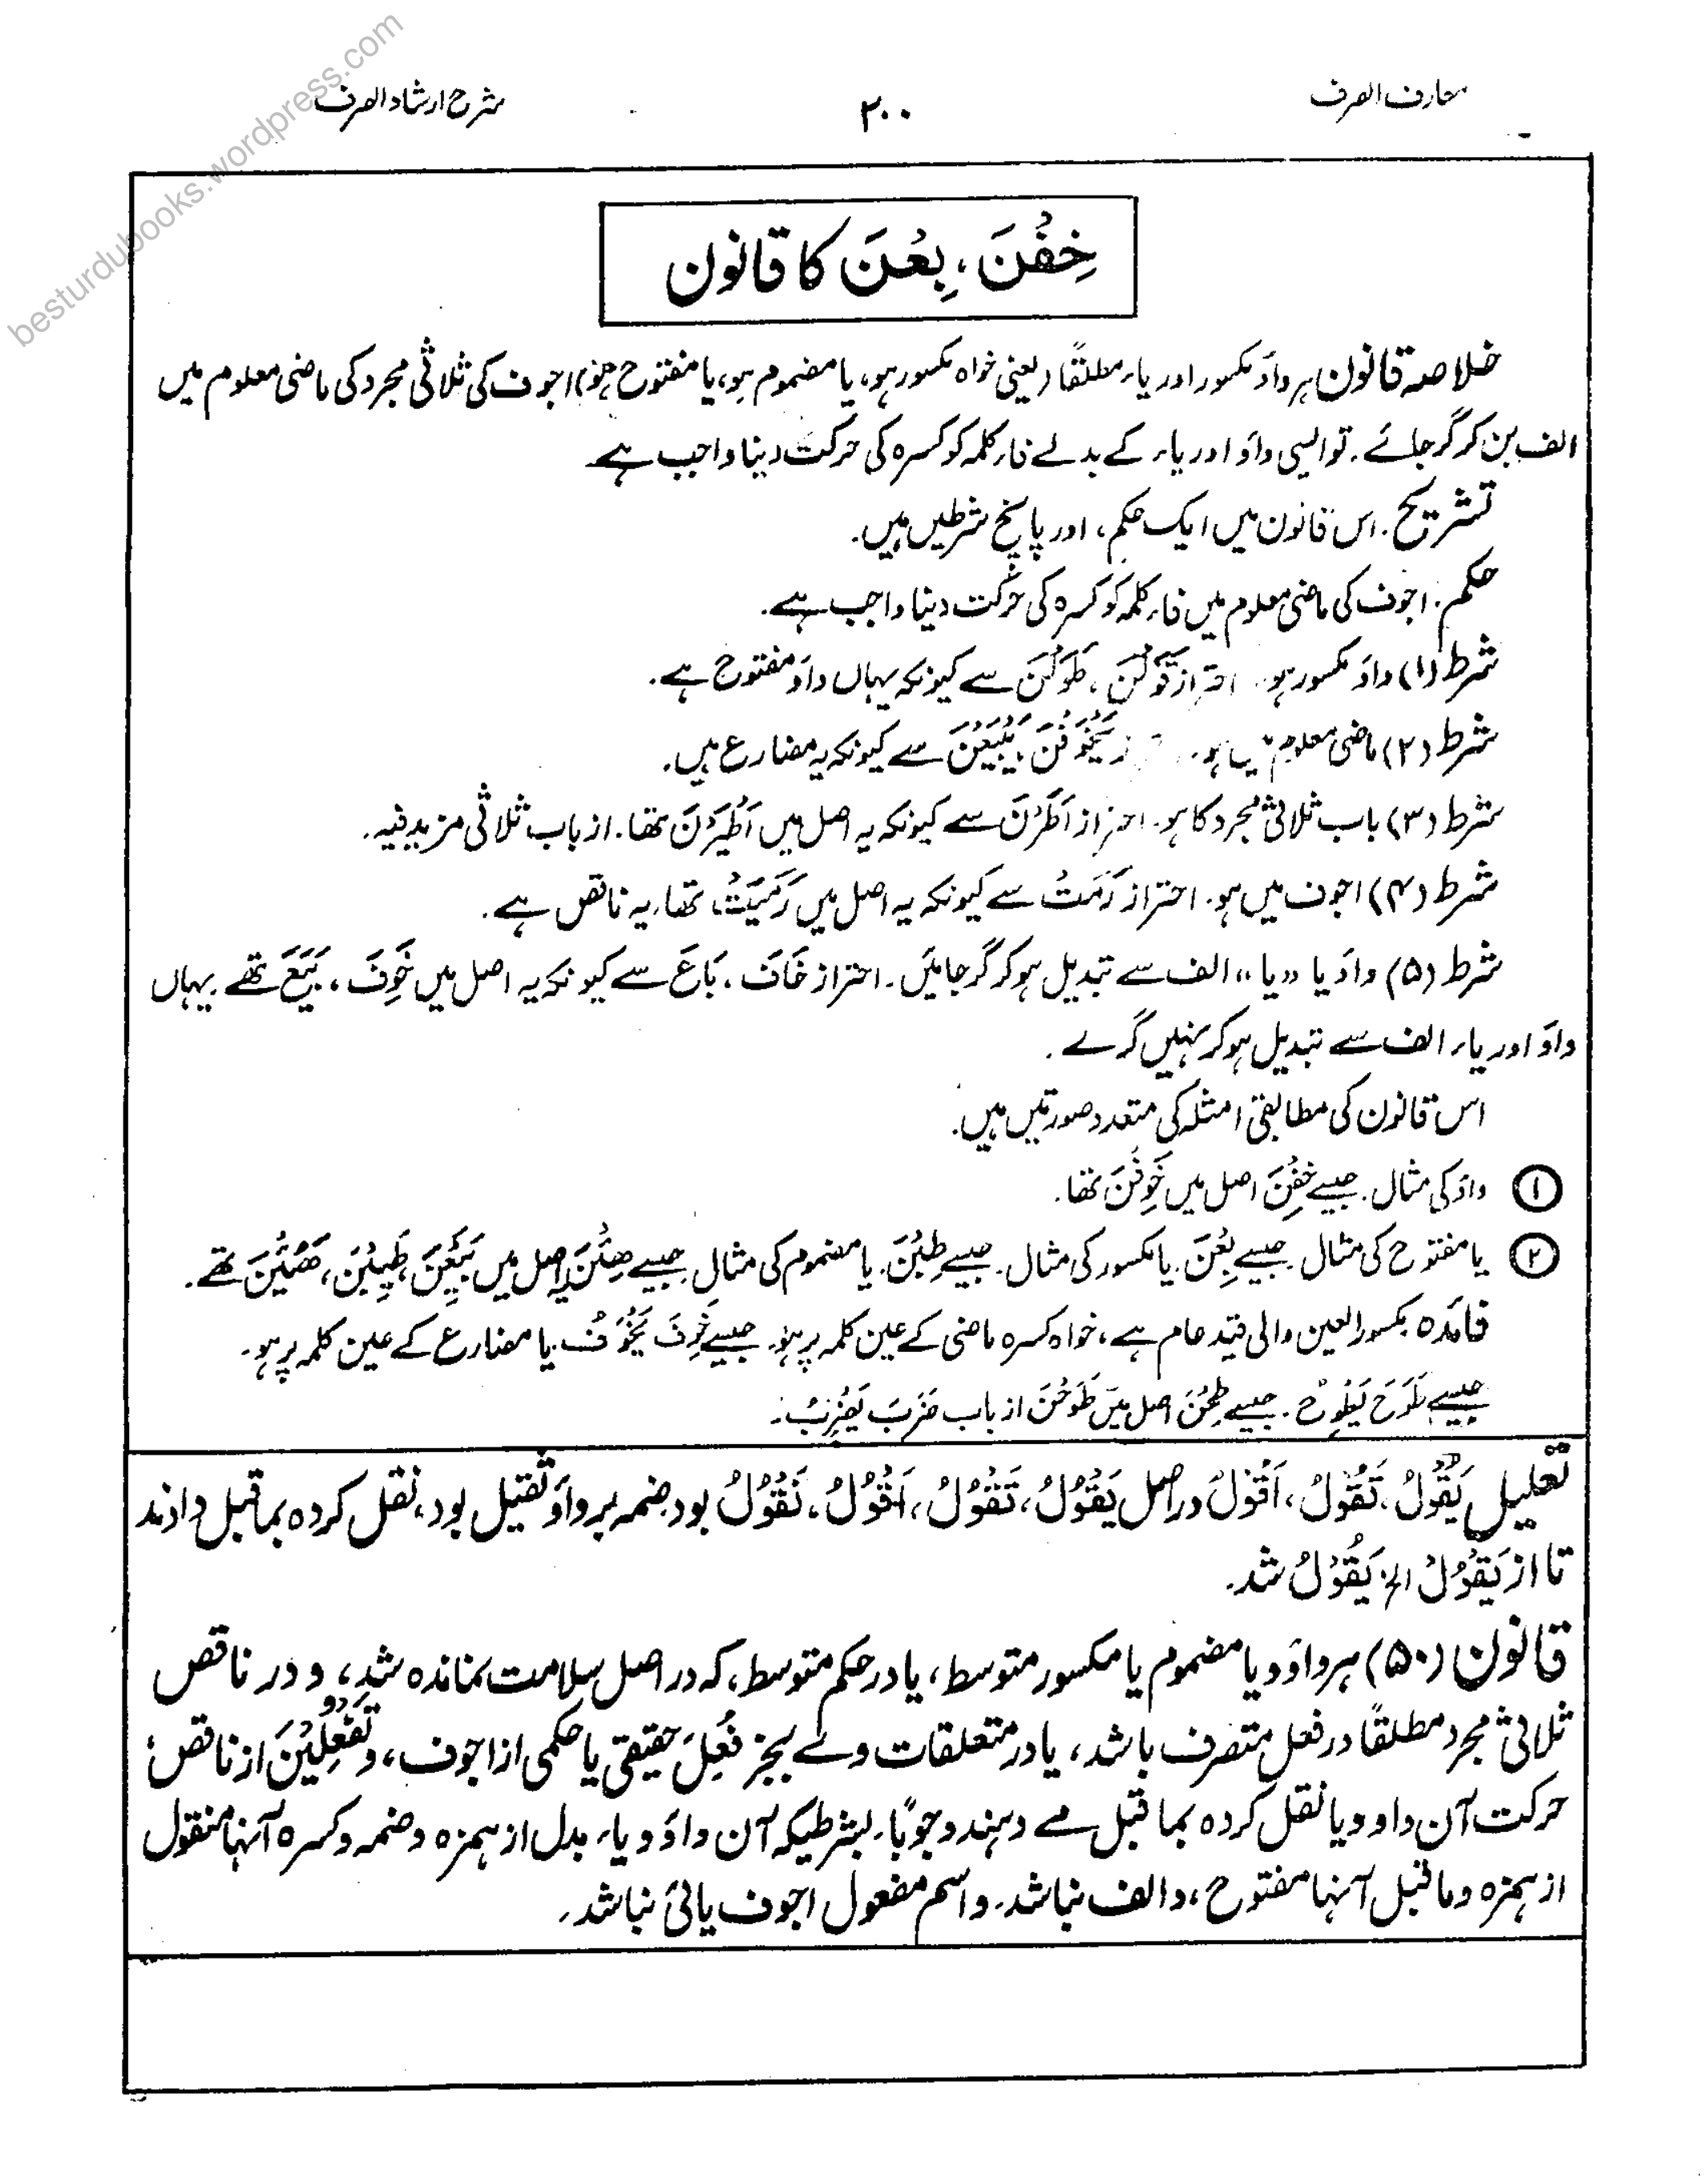 معارف الصرف
۲۰۰
شرح ارشاد الصرف
besturdubooks.wordpress.com
خِفْنَ ، بِعْنَ کا قانون
خلاصہ قانون ہر واؤ مکسور اور یاء مطلقًا (یعنی خواہ مکسور ہو، یا مضموم ہو، یا مفتوح ہو) اجوف کی ثلاثی مجرد کی ماضی معلوم میں
الف بن کر گر جائے۔ تو ایسی واؤ اور یاء کے بدلے فاء کلمہ کو کسرہ کی حرکت دینا واجب ہے
تشریح۔ اس قانون میں ایک حکم، اور پانچ شرطیں ہیں۔
حکم۔ اجوف کی ماضی معلوم میں فاء کلمہ کو کسرہ کی حرکت دینا واجب ہے۔
شرط (۱) واؤ مکسور ہو۔ احتراز قَوَلْنَ ، طَوَلْنَ سے کیونکہ یہاں واؤ مفتوح ہے۔
شرط (۲) ماضی معلوم ہو۔ یَخْوَفْنَ یَبْیِعْنَ سے کیونکہ یہ مضارع ہیں۔
شرط (۳) باب ثلاثی مجرد کا ہو۔ احتراز اَطَرْنَ سے کیونکہ یہ اصل میں اَطْیَرْنَ تھا۔ از باب ثلاثی مزید فیہ۔
شرط (۴) اجوف میں ہو۔ احتراز رَمَتْ سے کیونکہ یہ اصل میں رَمَیَتْ، تھا، یہ ناقص ہے۔
شرط (۵) واؤ یا "یا" الف سے تبدیل ہو کر گر جائیں۔ احتراز خَافَ ، بَاعَ سے کیونکہ یہ اصل میں خَوِفَ ، بَیَعَ تھے یہاں
واؤ اور یاء الف سے تبدیل ہو کر نہیں گرے ۔
اس قانون کی مطابقی امثلہ کی متعدد صورتیں ہیں۔
۱ واؤ کی مثال۔ جیسے خِفْنَ اصل میں خَوِفْنَ تھا۔
۲ یا مفتوح کی مثال۔ جیسے بِعْنَ۔ یا مکسور کی مثال۔ جیسے طِبْنَ۔ یا مضموم کی مثال جیسے هِئْنَ یہ اصل میں بَیَعْنَ، طَیِبْنَ، هَیُئْنَ تھے۔
فائدہ مکسور العین والی قید عام ہے، خواہ کسرہ ماضی کے عین کلمہ پر ہو۔ جیسے خَوِفَ یَخْوَفُ یا مضارع کے عین کلمہ پر ہو۔
جیسے طَوَحَ یَطْوِحُ ۔ جیسے طِحْنَ اصل میں طَوَحْنَ از باب ضَرَبَ یَضْرِبُ۔
تعلیل یَقُوْلُ، تَقُوْلُ، اَقُوْلُ در اصل یَقْوُلُ، تَقْوُلُ، اَقْوُلُ، نَقْوُلُ بود ضمہ بر واؤ ثقیل بود، نقل کردہ بما قبل دادند
تا از یَقْوُلُ الخ یَقُوْلُ شد۔
قانون (۵۰) ہر واؤ و یا مضموم یا مکسور متوسط، یا در حکم متوسط، کہ در اصل سلامت نماندہ شد، و در ناقص
ثلاثی مجرد مطلقًا در فعل متصرف باشد، یا در متعلقات وے بجز فُعِلَ حقیقی یا حکمی از اجوف، و تَفْعُلِیْنَ از ناقص
حرکت آن واو و یا نقل کردہ بما قبل مے دہند وجوبًا، بشرطیکہ آن واؤ و یاء بدل از ہمزہ و ضمہ و کسرہ آنہا منقول
از ہمزہ و ما قبل آنہا مفتوح، و الف نباشد۔ و اسم مفعول اجوف یائی نباشد۔